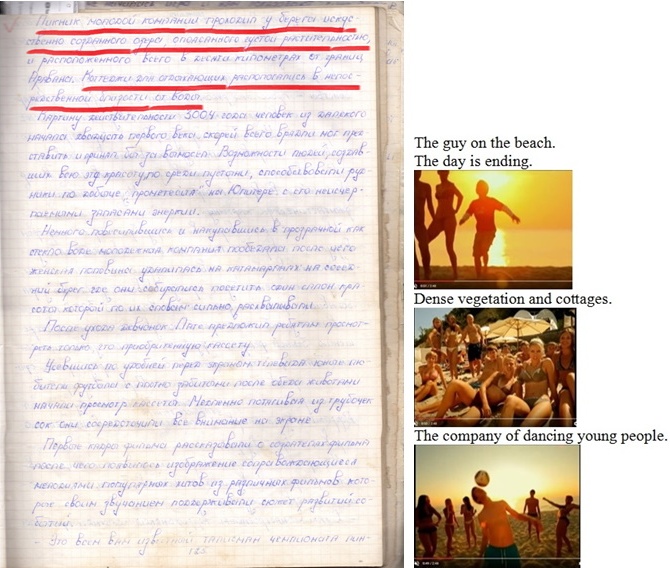 Пикник молодой компании проходил у берегов искус-
ственно созданного озера, опоясанного густой растительностью,
и расположенного всего в десяти километрах от границ
Коттеджи для отдыхающих располагались в непос-
редственной близости от воды.
Картину действительности 3004 года человек из далекого
начала двадцать первого века, скорей всего врядли мог пред
ставить и принял бы за вымысел. Возможности людей, создав-
ших всю эту красоту по среди пустыни, способствовали руд-
ники по добыче "прометея" на Юпитере с его неисчер-
паемыми запасами энергии.
Немного повеселившись и накупавшись в прозрачной как
стекло воде молодежная компания пообедала после чего
женская половина удалилась на катамаранах на сосед-
ний берег, где они собирались посетить салон кра-
соты который по их словам сильно расхваливали.
После ухода девчонок, предложил ребятам просмот-
реть только что приобретенную кассету.
Усевшись по удобней перед экраном телевизора юные лю-
бители футбола с плотно забитыми после обеда животами
начали просмотр кассеты. Медленно потягивая из трубочек
сок они сосредоточили все внимание на экране.
Первые кадры фильма рассказывали о создателях фильма
после чего появилось изображение сопровождающееся
мелодиями популярных хитов из различных фильмов кото-
рые своим звучанием поддерживали сюжет развития со-
бытий.
- Это всем вам известный талисман чемпионата
The guy on the beach.
The day is ending.
Dense vegetation and cottages.
The company of dancing young people.